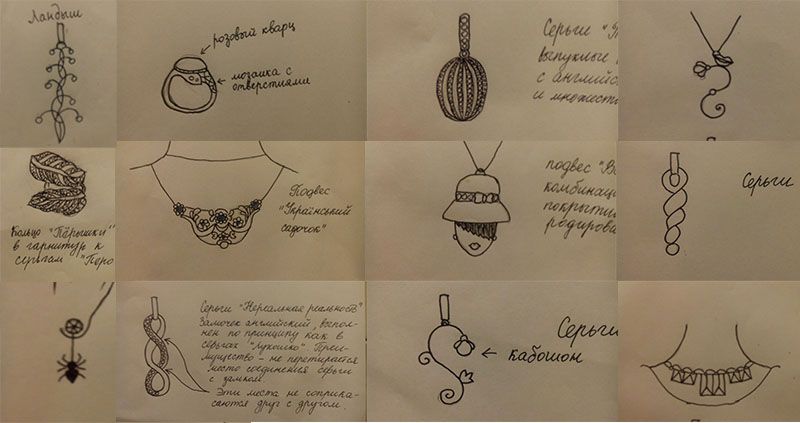 Ландыш
розовый кварц
мозаика с
отверстиями
Серьги
выпуклые
с английс
и множест
Кольцо "Пёрышки"
в гарнитур к
серьгам "Перо
Подвес
"Український
садочок"
подвес
комбинаци
покрыти
родирова
Серьги
Серьги "Нереальная реальность"
Замочек английский, выпол-
нен по принципу как в
серьгах "Лукошко" Преи-
мущество - не перетирается
место соединения серьги
с замком.
Эти места не соприка-
саются друг с другом.
Серьги
кабошон